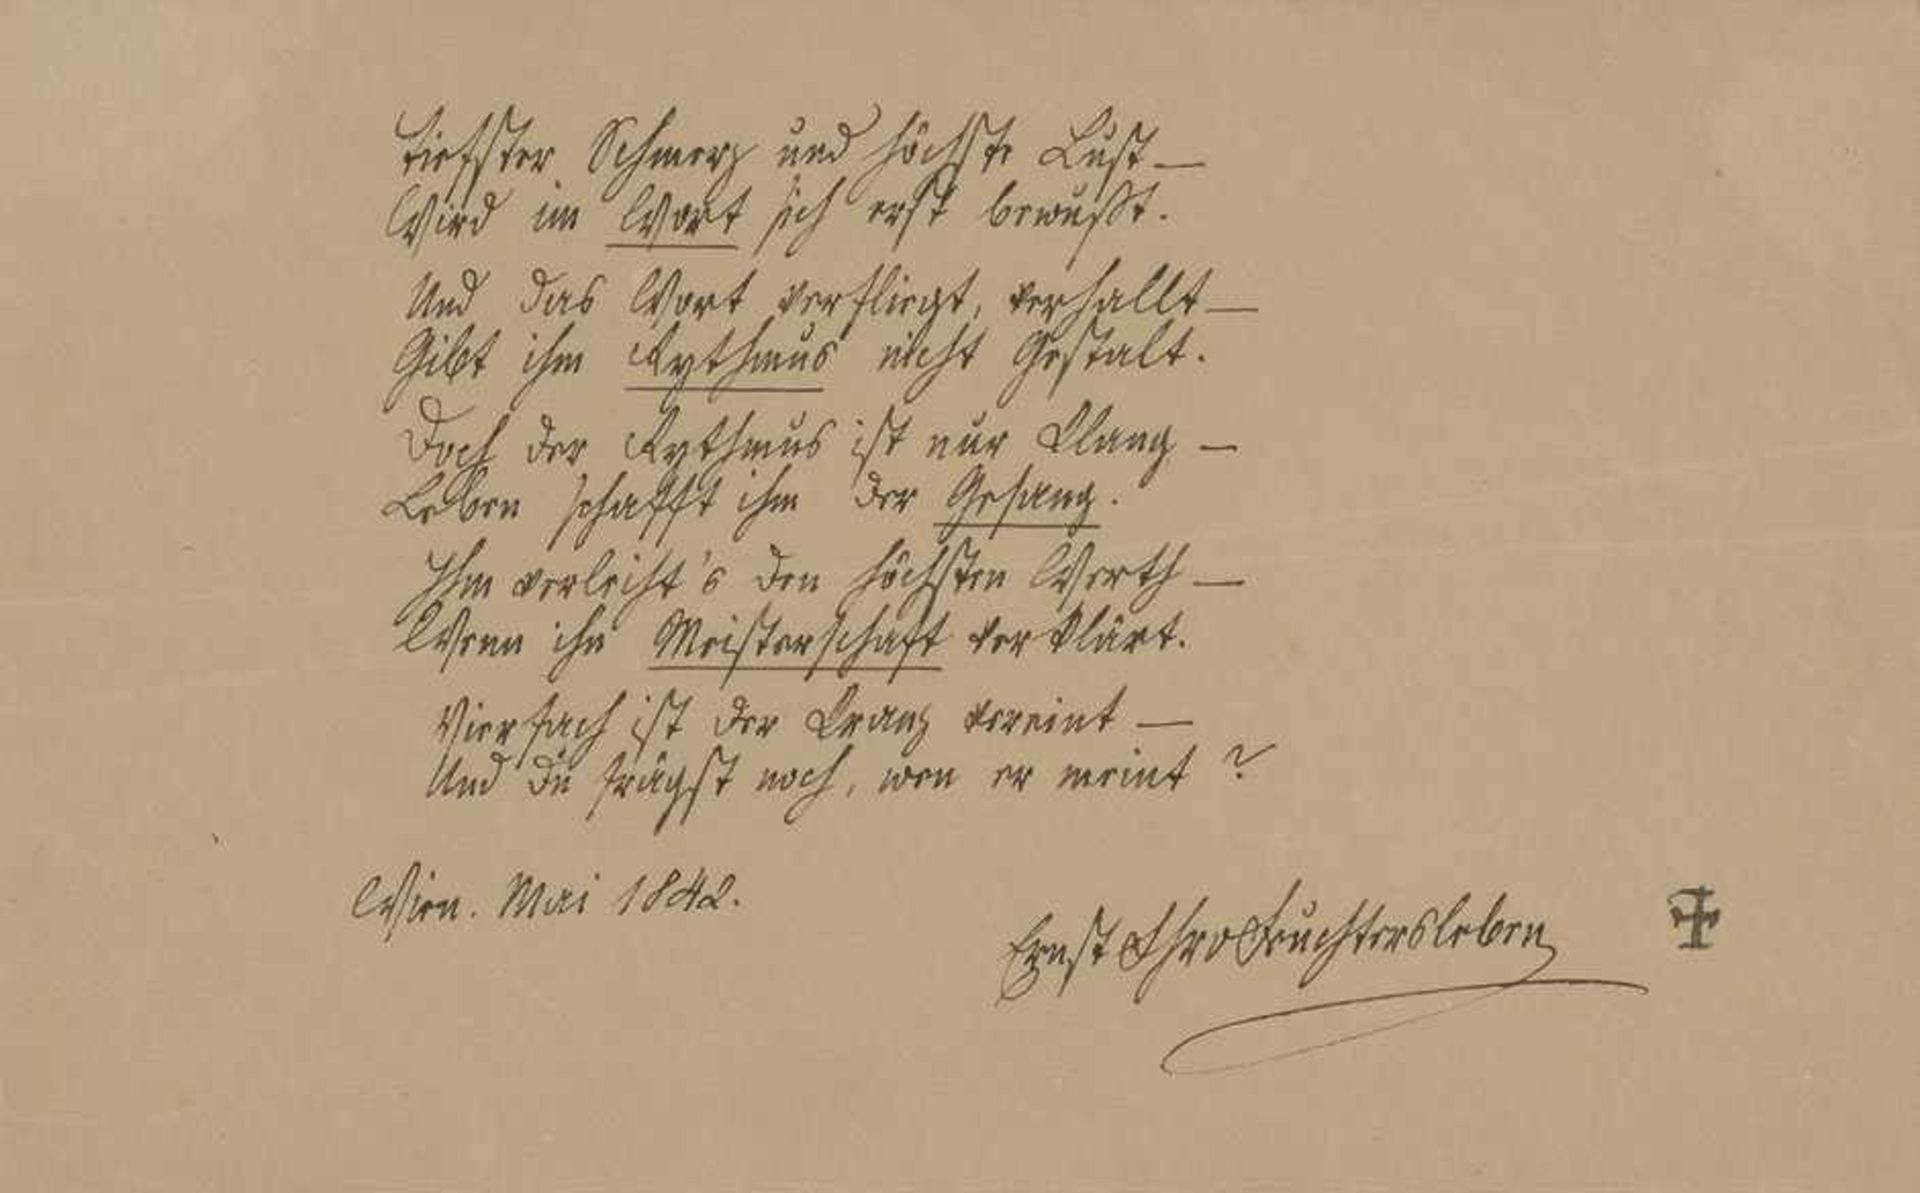 Tiefster Schmerz und höchste Lust —
Wird im Wort sich erst bewußt.
Und das Wort verfliegt, verhallt —
Gibt ihm Rythmus nicht Gestalt.
Doch der Rythmus ist nur Klang —
Leben schafft ihm der Gesang.
Ihm verleiht's den höchsten Werth —
Wenn ihn Meisterschaft verklärt.
Vierfach ist der Kranz vereint —
Und du frägst noch, wen er meint?
Wien. Mai 1842.
Ernst Fhrv Feuchtersleben